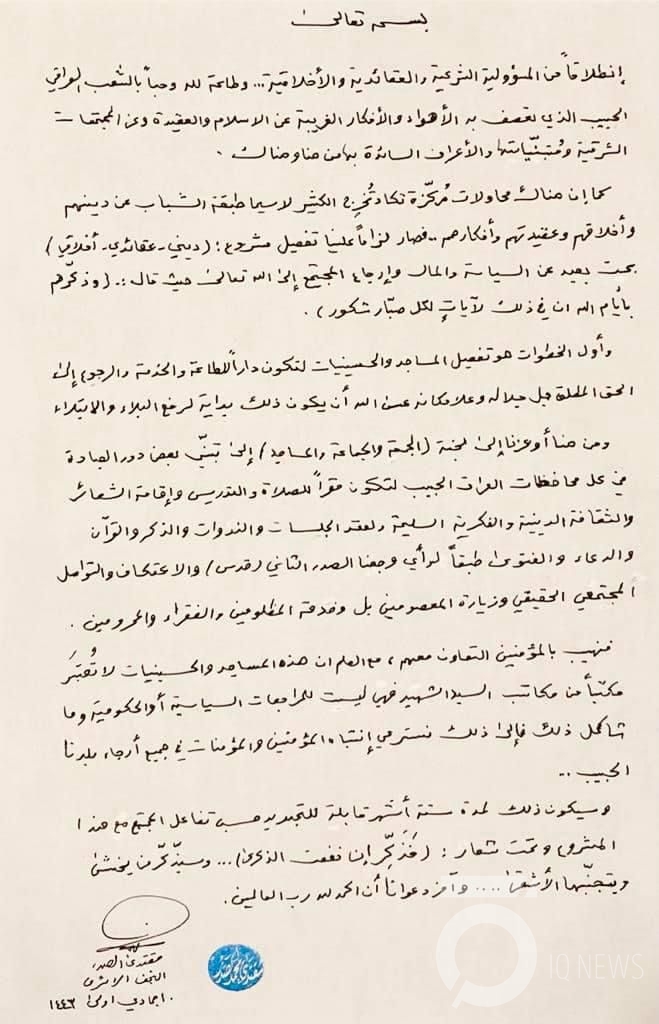 بسمه تعالى
إنطلاقاً من المسؤولية الشرعية والعقائدية والأخلاقية... وطاعة لله وحباً بالشعب العراقي
الحبيب الذي تعصف به الأهواء والأفكار الغريبة عن الاسلام والعقيدة وعن المجتمعات
الشرقية ومُتبنّياتها والأعراف السائدة بها من هنا وهناك .
كما إن هناك محاولات مُركّزة تكاد تُخرِج الكثير لاسيما طبقة الشباب عن دينهم
وأخلاقهم وعقيدتهم وأفكارهم .. فصار لزاماً علينا تفعيل مشروع : (ديني - عقائدي - أخلاقي)
بحت بعيد عن السياسة والمال وإرجاع المجتمع إلى الله تعالى حيث قال : .. (وذكّرهم
بأيام الله ان في ذلك لآياتٍ لكل صبّار شكور) .
وأول الخطوات هو تفعيل المساجد والحسينيات لتكون داراً للطاعة والخدمة والرجوع إلى
الحق المطلق جل جلاله وعلا مكانه عسى الله أن يكون ذلك بداية لرفع البلاء والابتلاء
ومن هنا أوعزنا إلى لجنة (الجمعة والجماعة والمساجد) إلى تبنّي بعض دور العبادة
في كل محافظات العراق الحبيب لتكون مقراً للصلاة والتدريس وإقامة الشعائر
والثقافة الدينية والفكرية السليمة ولعقد الجلسات والندوات والذكر والقرآن
والدعاء والفتوى طبقاً لرأي مرجعنا الصدر الثاني (قدس) والاعتكاف والتواصل
المجتمعي الحقيقي وزيارة المعصومين بل وخدمة المظلومين والفقراء والمحرومين .
فنهيب بالمؤمنين التعاون معهم ، مع العلم ان هذه المساجد والحسينيات لا تُعتبَر
مكتباً من مكاتب السيد الشهيد فهي ليست للمراجعات السياسية أو الحكومية وما
شاكل ذلك فإلى ذلك نسترعي إنتباه المؤمنين والمؤمنات في جميع أرجاء بلدنا
الحبيب ..
وسيكون ذلك لمدة ستة أشهر قابلة للتجديد حسب تفاعل المجتمع مع هذا
المشروع وتحت شعار : (فَذَكِّر إن نفعت الذكرى) ... وسيذّكّر من يخشى
ويتجنّبها الأشقى .... وآخر دعوانا أن الحمد لله رب العالمين .
مقتدى الصدر
النجف الاشرف
١٠ جمادي اولى ١٤٤٣
IQ NEWS